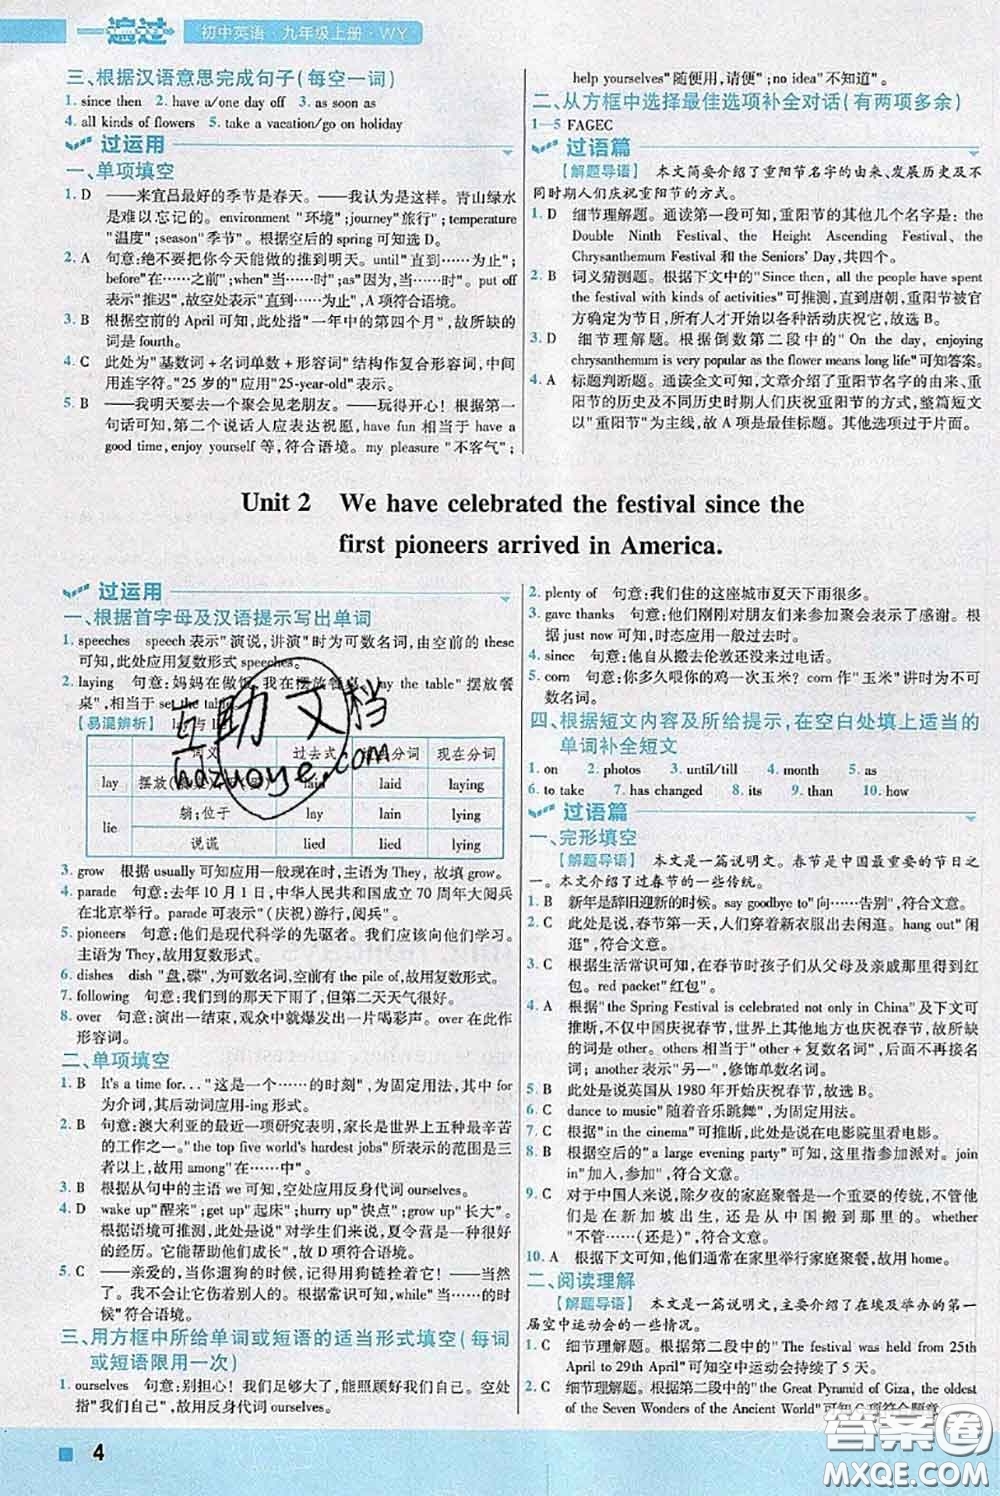 一遍过 初中英语·九年级上册·WY
三、根据汉语意思完成句子(每空一词)
1. since then 2. have a/one day off 3. as soon as
4. all kinds of flowers 5. take a vacation/go on holiday
过运用
一、单项填空
1. D ——来宜昌最好的季节是春天。——我认为是这样。青山绿水
是难以忘记的。environment "环境";journey"旅行";temperature
"温度";season"季节"。根据空后的 spring 可知选 D。
2. A 句意:绝不要把你今天能做的推到明天。until"直到……为止";
before"在……之前";when"当……时";as"因为,当……时"。put off
表示"推迟",故空处表示"直到……为止",A 项符合语境。
3. B 根据空前的 April 可知,此处指"一年中的第四个月",故所缺的
词是 fourth。
4. C 此处为"基数词+名词单数+形容词"结构作复合形容词,中间
用连字符。"25 岁的"应用"25-year-old"表示。
5. B ——我明天要去一个聚会见老朋友。——玩得开心!根据第一
句话可知,第二个说话人应表达祝愿,have fun 相当于 have a
good time, enjoy yourself 等,符合语境。my pleasure "不客气";
help yourselves"随便用,请便";no idea"不知道"。
二、从方框中选择最佳选项补全对话(有两项多余)
1—5 FAGEC
过语篇
【解题导语】 本文简要介绍了重阳节名字的由来、发展历史及不
同时期人们庆祝重阳节的方式。
1. D 细节理解题。通读第一段可知,重阳节的其他几个名字是: the
Double Ninth Festival, the Height Ascending Festival, the
Chrysanthemum Festival 和 the Seniors' Day,共四个。
2. B 词义猜测题。根据下文中的"Since then, all the people have spent
the festival with kinds of activities"可推测,直到唐朝,重阳节被官
方确定为节日,所有人才开始以各种活动庆祝它,故选 B。
3. D 细节理解题。根据倒数第二段中的"On the day, enjoying
chrysanthemum is very popular as the flower means long life"可知答案。
4. A 标题判断题。通读全文可知,文章介绍了重阳节名字的由来、重
阳节的历史及不同历史时期人们庆祝重阳节的方式,整篇短文
以"重阳节"为主线,故 A 项是最佳标题。其他选项过于片面。
Unit 2 We have celebrated the festival since the
first pioneers arrived in America.
过运用
一、根据首字母及汉语提示写出单词
1. speeches speech 表示"演说,讲演"时为可数名词,由空前的 these
可知,此处应用复数形式 speeches。
2. laying 句意:妈妈在做饭,我在摆放餐桌。lay the table"摆放餐
桌",相当于 set the table。
【易混辨析】 lay 与 lie
词义 过去式 过去分词 现在分词
lay 摆放(餐桌);下(蛋) laid laid laying
lie 躺;位于 lay lain lying
说谎 lied lied lying
3. grow 根据 usually 可知应用一般现在时,主语为 They,故填 grow。
4. parade 句意:去年 10 月 1 日,中华人民共和国成立 70 周年大阅兵
在北京举行。parade 可表示"(庆祝)游行,阅兵"。
5. pioneers 句意:他们是现代科学的先驱者。我们应该向他们学习。
主语为 They,故用复数形式。
6. dishes dish "盘,碟",为可数名词,空前有 the pile of,故用复数形式。
7. following 句意:我们到的那天下雨了,但第二天天气很好。
8. over 句意:演出一结束,观众中就爆发出一片喝彩声。over 在此作
形容词。
二、单项填空
1. B It's a time for... "这是一个……的时刻",为固定用法,其中 for
为介词,其后动词应用-ing 形式。
2. B 句意:澳大利亚的最近一项研究表明,家长是世界上五种最辛苦
的工作之一。"the top five world's hardest jobs"所表示的范围是三
者以上,故用 among"在……中"。
3. B 根据从句中的主语 we 可知,空处应用反身代词 ourselves。
4. D wake up"醒来";get up"起床";hurry up"快点";grow up"长大"。
根据语境可推测,此处是说"对学生们来说,夏令营是一种很好
的经历。它能帮助他们成长",故 D 项符合语境。
5. C ——亲爱的,当你遛狗的时候,记得用狗链拴着它! ——当然
了。我不会让它伤着别人的。根据常识可知, while"当……的
时候"符合语境。
三、用方框中所给单词或短语的适当形式填空(每词
或短语限用一次)
1. ourselves 句意:别担心!我们足够大了,能照顾好我们自己。空处
指"我们自己",故用反身代词 ourselves。
2. plenty of 句意:我们居住的这座城市夏天下雨很多。
3. gave thanks 句意:他们刚刚对朋友们来参加聚会表示了感谢。根
据 just now 可知,时态应用一般过去时。
4. since 句意:他自从搬去伦敦还没来过电话。
5. corn 句意:你多久喂你的鸡一次玉米? corn 作"玉米"讲时为不可
数名词。
四、根据短文内容及所给提示,在空白处填上适当的
单词补全短文
1. on 2. photos 3. until/till 4. month 5. as
6. to take 7. has changed 8. its 9. than 10. how
过语篇
一、完形填空
【解题导语】 本文是一篇说明文。春节是中国最重要的节日之
一。本文介绍了过春节的一些传统。
1. B 新年是辞旧迎新的时候。say goodbye to"向……告别",符合文意。
2. C 此处是说,春节第一天,人们穿着新衣服出去闲逛。hang out"闲
逛",符合文意。
3. C 根据生活常识可知,春节时孩子们从父母及亲戚那里得到红
包。red packet"红包"。
4. A 根据"the Spring Festival is celebrated not only in China"及下文可
推断,不仅中国庆祝春节,世界上其他地方也庆祝春节,故所缺
的词是 other。others 相当于"other+复数名词",后面不再接名
词;another 表示"另一",修饰单数名词。
5. B 此处是说英国从 1980 年开始庆祝春节,故选 B。
6. C dance to music"随着音乐跳舞",为固定用法。
7. C 根据"in the cinema"可推断,此处是说在电影院里看电影。
8. B 根据空后的"a large evening party"可知,这里指参加派对。join
in"加入,参加",符合文意。
9. C 对于中国人来说,除夕夜的家庭聚餐是一个重要的传统,不管他
们是在新加坡出生,还是从中国搬到那里的。whether
"不管……(还是)",符合文意。
10. A 根据下文可知,他们通常在家里举行家庭聚餐,故用 home。
二、阅读理解
【解题导语】 本文是一篇说明文,主要介绍了在埃及举办的第一
届空中运动会的一些情况。
1. C 细节理解题。根据第二段中的"The festival was held from 25th
April to 29th April"可知空中运动会持续了 5 天。
2. C 细节理解题。根据第二段中的"the Great Pyramid of Giza, the oldest
of the Seven Wonders of the Ancient World"可知 C 项符合题意。
4
互助文档
hdzuoye.com
答案圈
MXQE.COM